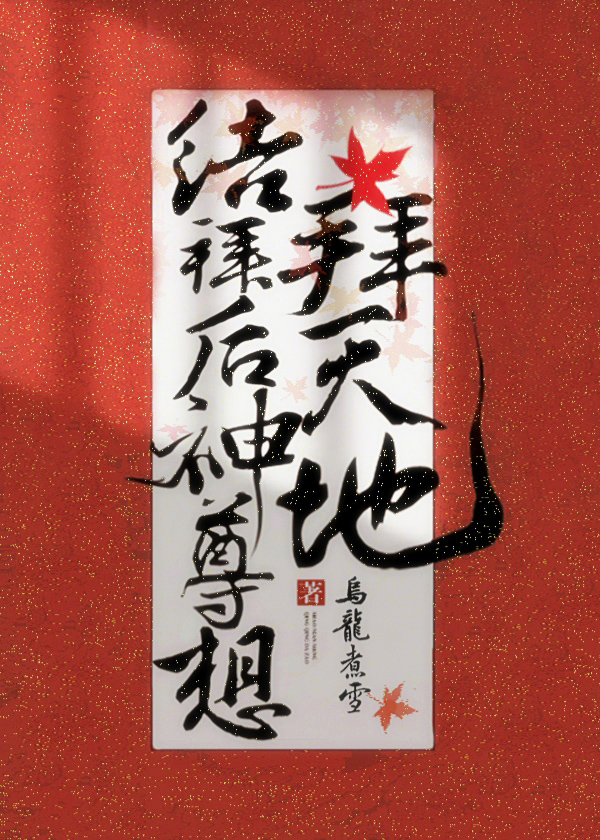 结拜后神尊想
拜天地
烏龍煮雪
著